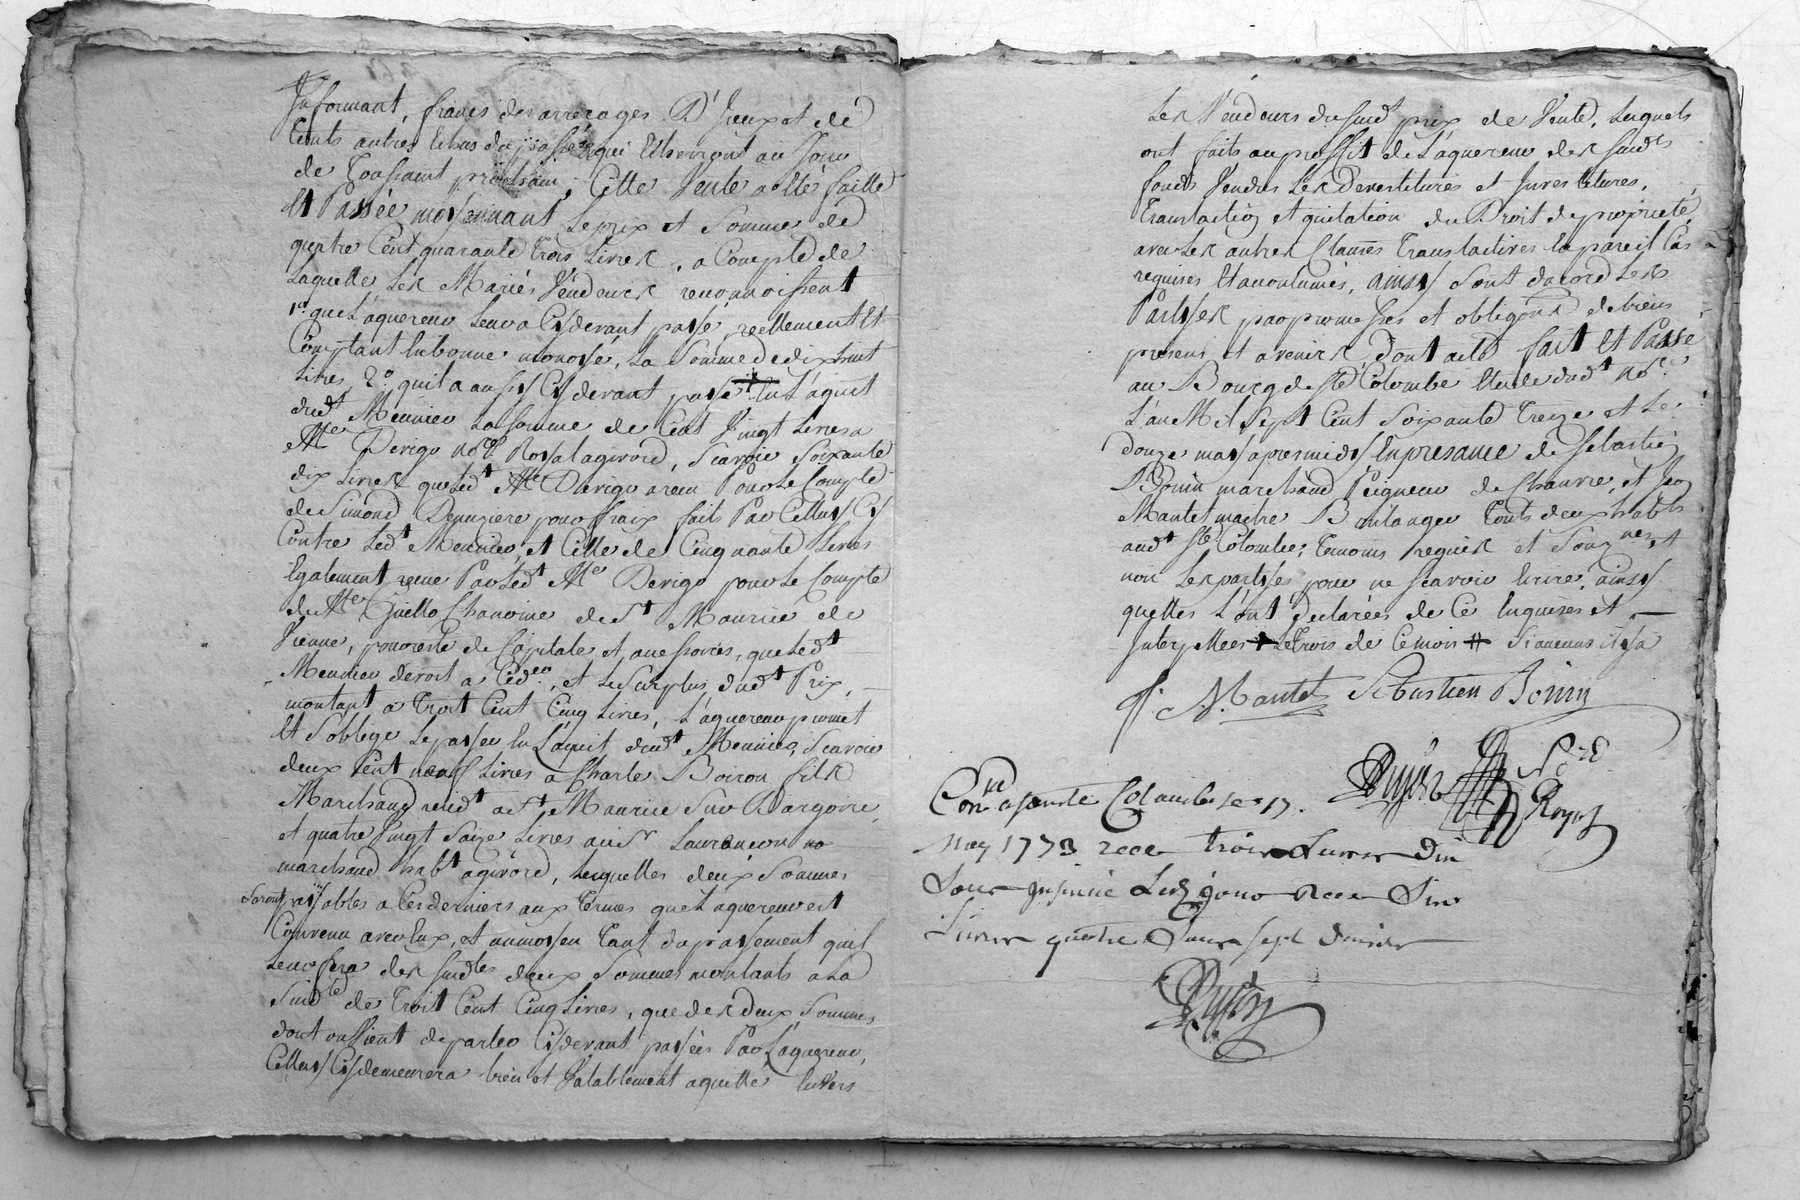 Informant, francs des arrerages D'Jceux et de
touts autres Echus du passé qui Echerront au Jour
de Toussaint prochain; Cette Vente a eté faitte
Et Passée moyennant Le prix et Somme de
quatre Cent quarante Trois Livres, a Compte de
Laquelle Les Mariés Vendeurs reconnoissent
1°. que L'aquereur Leur a Cydevant payé reellement Et
Comptant En bonne monoye, La Somme de dix huit
Livres, 2°. quil a aussy Cydevant payé En L'aquit
dudt Meunier La Somme de Cent Vingt Livres a
Me Perigo nore Royal a givord, Scavoir Soixante
dix Livres que Ledt Me Perigo a recu Pour Le Compte
de Simond pour fraix faits Par Celluy Cy
Contre Ledt Meunier, et Celle de Cinquante Livres
Egalement recue Par Ledt Me Perigo pour Le Compte
de Me Guello Chanoine de St Maurice de
Vienne, pour reste de Capitale et accessoires, que Ledt
Meunier devoit a et Le Surplus dudt Prix,
montant a Troit Cent Cinq Livres, L'aquereur promet
Et S'oblige Le payer En L'aquit dudt Meunier, Scavoir
deux Cent neuf Livres a Charle Boiron fils
Marchand residt a St Maurice Sur Dargoire,
et quatre Vingt Saize Livres au Sr Laurencon
marchand habt a givord, Lesquelles deux Sommes
Seront payables a Ces derniers aux Termes que L'aquereur est
Convenu avec Eux, et au moyen Tant du payement quil
Leur fera des Suidtes deux Sommes montants a La
Suidte de Troit Cent Cinq Livres, que des deux Sommes
dont on Vient de parler Cydevant payées Par L'aquereur,
Celluy Cy demeurera bien et Valablement aquitté Envers
Les Vendeurs du Suidt prix de Vente, Lesquels
ont faits au proffit de L'aquereur des Suidts
fonds Vendus Les Devestitures et Jnvestitures,
Translation et quitation du Droit de proprieté,
avec Les autres Clauses Translatives En pareil Cas
requises Et acoutumées, ainsy Sont d'acord Les
Partyes par promesses et obligons de biens
presens et avenirs, dont acte fait Et Passé
au Bourg de Ste Colombe Etude dudt nore
L'an Mil Sept Cent Soixante Treize et Le
douze may apres midy En presance de Sebastien
Bonin marchand Peigneur de Chanvre, et Jean
Mantel maitre Boulanger Touts deux habts
audt Ste Colombe, Temoins requis et Soug nes, et
non Les partyes pour ne Scavoir Ecrire, ainsy
quelles L'ont declarées de Ce Enquises et
Interpellées + Le Trois de Ce mois #
Mantel Sebastien Bonin
Dupuy
Nre
Royal
Conlé a sainte Colombe le 17.
May 1773 recu trois Livres Dix
Sous Jnsinué Led jour recu Six
Livres quatre Sous sept deniers
Dupuy